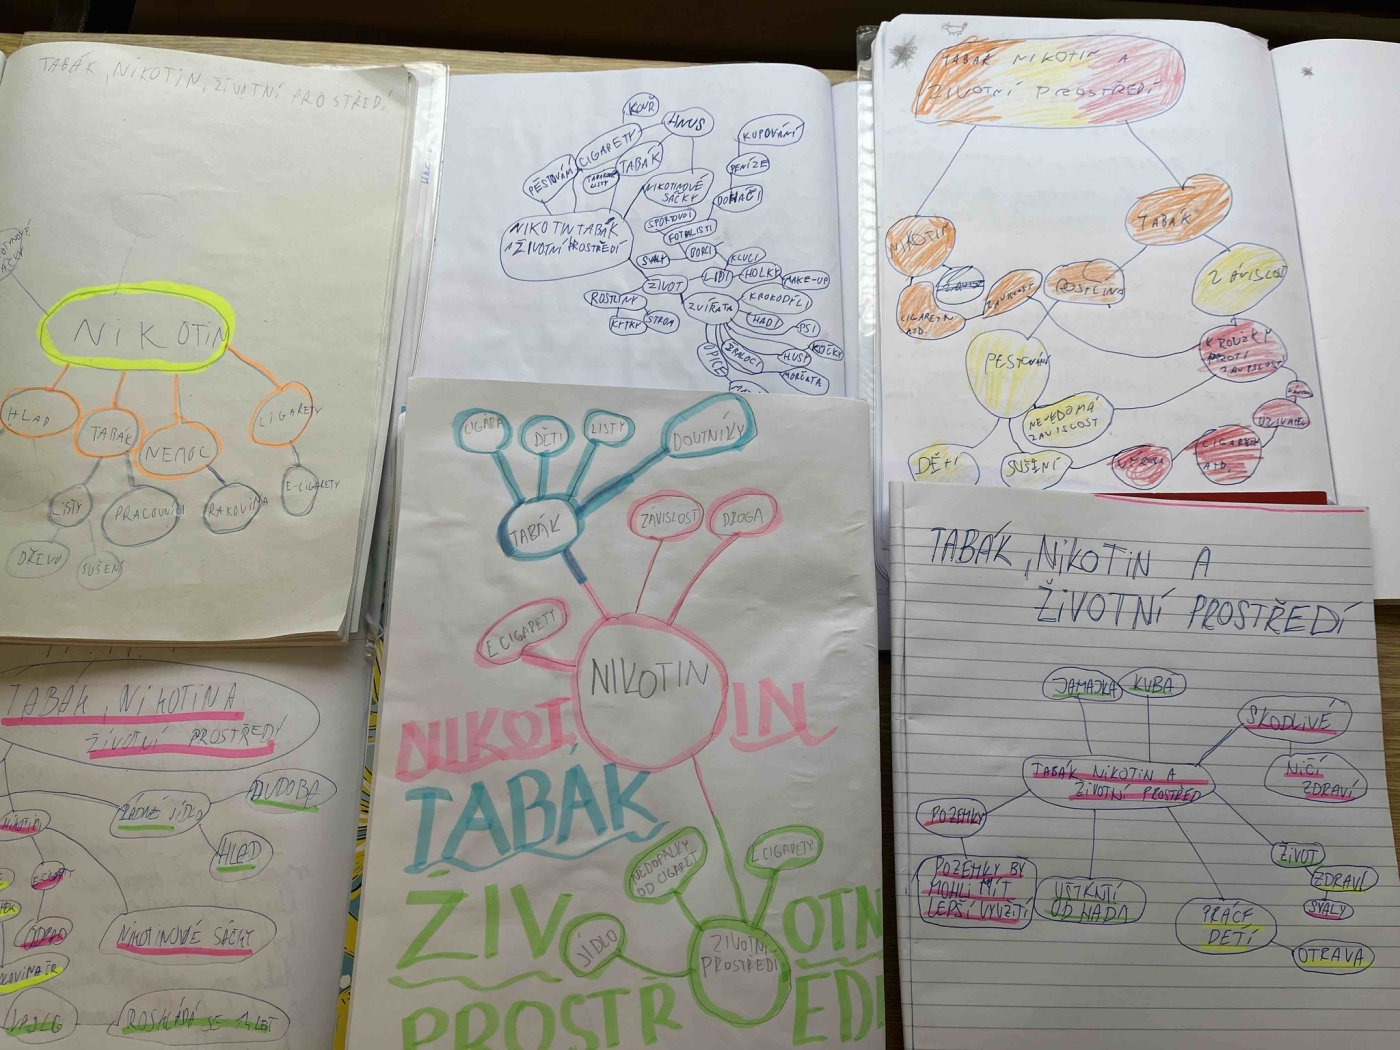 TABÁK, NIKOTIN, ŽIVOTNÍ PROSTŘEDÍ
NIKOTIN
HLAD
TABÁK
NEMOC
CIGARETY
LISTY
PRACOVNÍCI
RAKOVINA
E-CIGARETY
DŘEVO
SUŠENÍ
KOUŘ
HNUS
CIGARETY
TABÁK
PĚSTOVÁNÍ
TABÁKOVÉ
LISTY
NIKOTINOVÉ
SÁČKY
KUPOVÁNÍ
PENÍZE
BOHÁČI
NIKOTIN TABÁK
A ŽIVOTNÍ PROSTŘEDÍ
SPORTOVCI
FOTBALISTI
BORCI
SVALY
KLUCI
LIDI
HOLKY
MAKE-UP
ŽIVOT
ROSTLINY
KYTKY
STROM
ZVÍŘATA
KROKODÝLI
HADI
PSI
KOČKY
HUSY
MORČATA
OPICE
TABÁK NIKOTIN A
ŽIVOTNÍ PROSTŘEDÍ
NIKOTIN
TABÁK
CIGARETY
ATD.
ZÁVISLOST
ROSTLINA
ZÁVISLOST
PĚSTOVÁNÍ
KROUŽKY
PROTI
ZÁVISLOST
NEVĚDOMÁ
ZÁVISLOST
DĚTI
SUŠENÍ
VÝROBA
CIGARETY
ATD.
UŽIVATEL
CIGARA
DĚTI
LISTY
DOUTNÍKY
TABÁK
ZÁVISLOST
DROGA
E CIGARETY
NIKOTIN
NIKOTIN
TABÁK
NEDOPALKY
OD CIGARET
E CIGARETY
JÍDLO
ŽIVOTNÍ
PROSTŘEDÍ
ŽIVOTN
PROSTŘEDÍ
TABÁK, NIKOTIN A
ŽIVOTNÍ PROSTŘEDÍ
JAMAJKA
KUBA
ŠKODLIVÉ
NIČÍ
ZDRAVÍ
TABÁK NIKOTIN A
ŽIVOTNÍ PROSTŘED
POZEMKY
POZEMKY BY
MOHLI MÍT
LEPŠÍ VYUŽITÍ
UŠTKNTÍ
OD HADA
PRÁCE
DĚTÍ
OTRAVA
ŽIVOT
ZDRAVÍ
SVALY
TABÁK, NIKOTIN A
ŽIVOTNÍ PROSTŘEDÍ
ŽÁDNÉ JÍDLO
CHUDOBA
HLAD
NIKOTIN
E-CIGARETY
NIKOTINOVÉ SÁČKY
ROSKLÁDÁ SE
LET